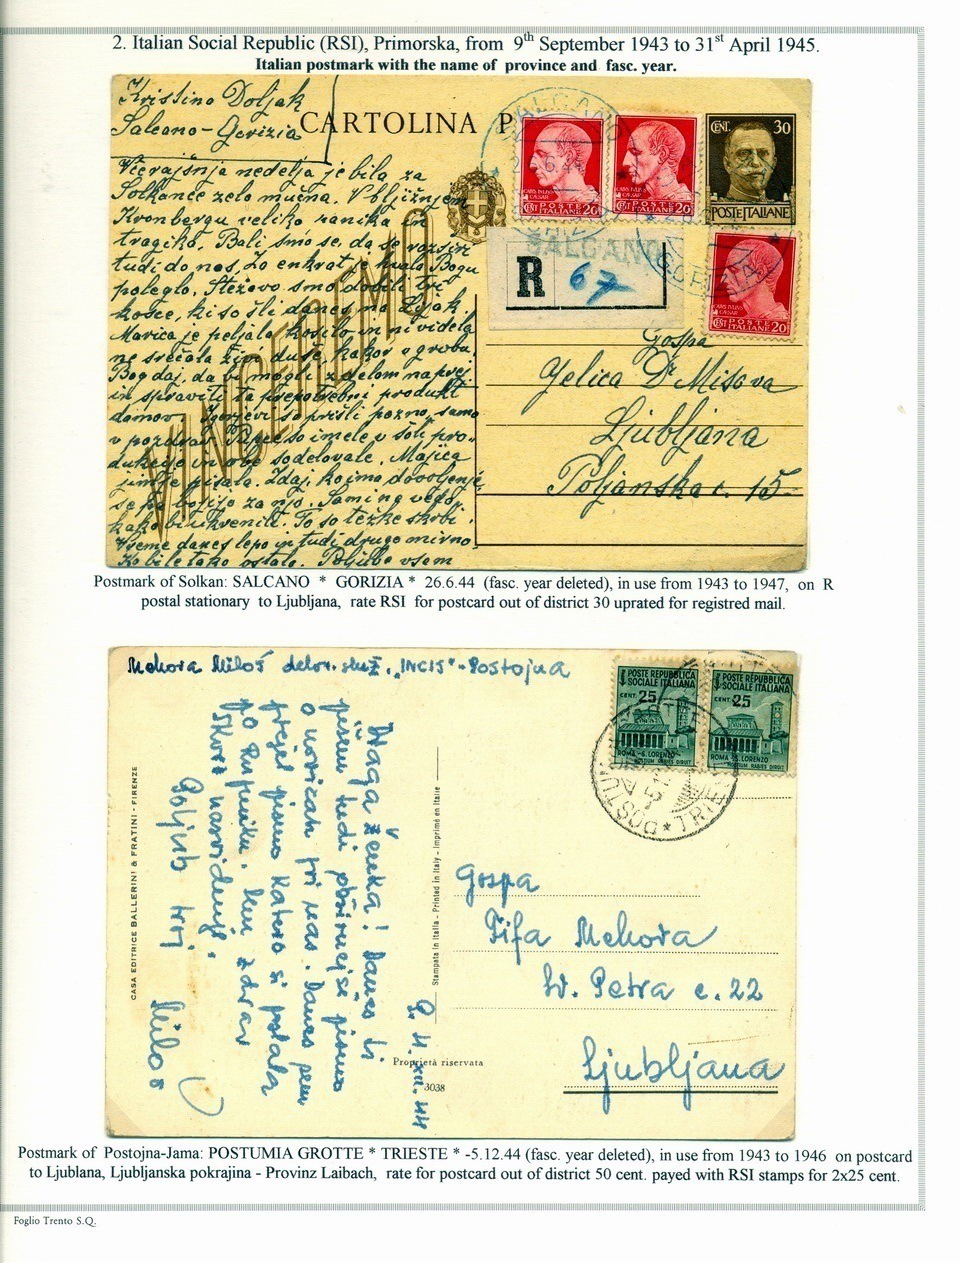 2. Italian Social Republic (RSI), Primorska, from 9th September 1943 to 31st April 1945.
Italian postmark with the name of province and fasc. year.
Kristino Doljak
Salcano-Gorizia
CARTOLINA P
SALCANO
GORIZIA
CENT. 30
POSTE ITALIANE
CENT POSTE ITALIANE 20
CENT POSTE ITALIANE 20
CENT POSTE ITALIANE 20
R
SALCANO
67
VINCEREMO
Včerajšnja nedelja je bila za
Solkance zelo mučna. V bližnjem
Kronbergu veliko ranika in
tragika. Bali smo se, da se razsiri
tudi do nas. Za enkrat je hvala Bogu
poleglo. Stežavo smo dobili tri
košce, ki so šli danes na Lijak.
Marica je peljala kosilo in ni videla
ne srečala žive duše, kakor v grobu.
Bog daj, da bi mogli z delom naprej
in spraviti ta prepotrebni produkt
domov. so prišli pozno, samo
v pozdrav. so imele v šoli pro-
dukcijo in obe sodelovale. Majica
pisala. Zdaj, ko ima dovoljenje,
se pa bojijo za njo. Sami ne vedo,
kako bi ukrenili. To so težke skrbi.
Vreme danes lepo in tudi drugo mirno.
Ko bi le tako ostalo. Poljube vsem
Gospa
Jelica Dr Misova
Ljubljana
Poljanska c. 15
Postmark of Solkan: SALCANO * GORIZIA * 26.6.44 (fasc. year deleted), in use from 1943 to 1947, on R
postal stationary to Ljubljana, rate RSI for postcard out of district 30 uprated for registred mail.
Mehora Miloš delov. služ. „INCIS" - Postojna
POSTE REPUBBLICA
SOCIALE ITALIANA
CENT. 25
ROMA - S. LORENZO
HOSTIUM RABIES DIRUIT
POSTE REPUBBLICA
SOCIALE ITALIANA
CENT. 25
ROMA - S. LORENZO
HOSTIUM RABIES DIRUIT
P. 4. dec. 44
Draga Ženka! Danes ti
pišem tudi obširnejše pismo
o novicah pri nas. Danes sem
prejel pismo katero si poslala
po Kupniku. Len zdrav
skoro nasvidenje.
Poljub tvoj
Miloš
CASA EDITRICE BALLERINI & FRATINI - FIRENZE
Stampata in Italia - Printed in Italy - Imprimé en Italie
Proprietà riservata
3038
Gospa
Fifa Mehora
Sv. Petra c. 22
Ljubljana
Postmark of Postojna-Jama: POSTUMIA GROTTE * TRIESTE * -5.12.44 (fasc. year deleted), in use from 1943 to 1946 on postcard
to Ljublana, Ljubljanska pokrajina - Provinz Laibach, rate for postcard out of district 50 cent. payed with RSI stamps for 2x25 cent.
Foglio Trento S.Q.